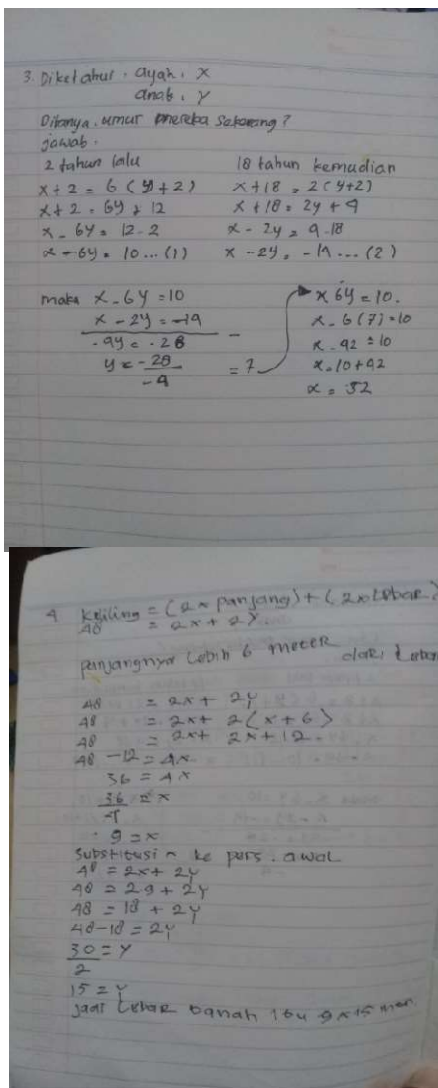 3. Diketahui. ayah. x
anak. y
Ditanya. umur mereka sekarang?
jawab.
2 tahun lalu 18 tahun kemudian
x + 2 = 6 (y + 2) x + 18 = 2 (y+2)
x + 2 = 6y + 12 x + 18 = 2y + 4
x - 6y = 12 - 2 x - 2y = 4 - 18
x - 6y = 10 ... (1) x - 2y = -14 ... (2)
maka x - 6y = 10
x - 2y = -14 -
-4y = -28
y = -28 = 7
-4
x 6y = 10.
x - 6(7) = 10
x - 42 = 10
x = 10 + 42
x = 52
4 Keliling = (2 x Panjang) + (2 x Lebar)
48 = 2x + 2y
panjangnya Lebih 6 meter dari Lebar
48 = 2x + 2y
48 = 2x + 2(x + 6)
48 = 2x + 2x + 12
48 - 12 = 4x
36 = 4x
36 = x
4
9 = x
Substitusi ke pers. awal
48 = 2x + 2y
48 = 2 9 + 2y
48 = 18 + 2y
48 - 18 = 2y
30 = y
2
15 = y
jadi Lebar tanah itu 9 x 15